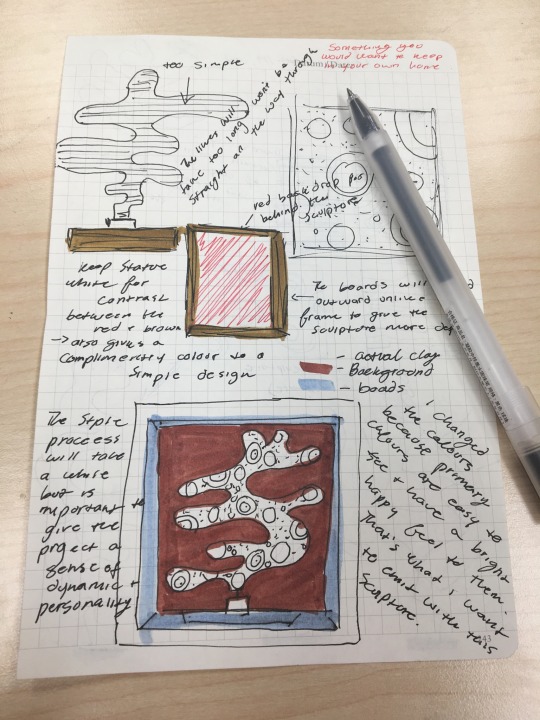 Something you
would want to keep
in your own home
too simple
The lines will
take too long won't be
straight all the way through
red backdrop for
behind the
sculpture
Keep Statue
white for
contrast
between the
red + brown
→ also gives a
complimentry colour to a
simple design
The boards will
outward unlike
frame to give the
sculpture more
- actual clay
- Background
- boads
The
process
will take
a while
but is
important to
give the
project a
sense of
dynamic +
personality
I changed
the colours
because primary
colours are easy to
see + have a bright
happy feel to them.
That's what I want
to emit with this
Sculpture.
43